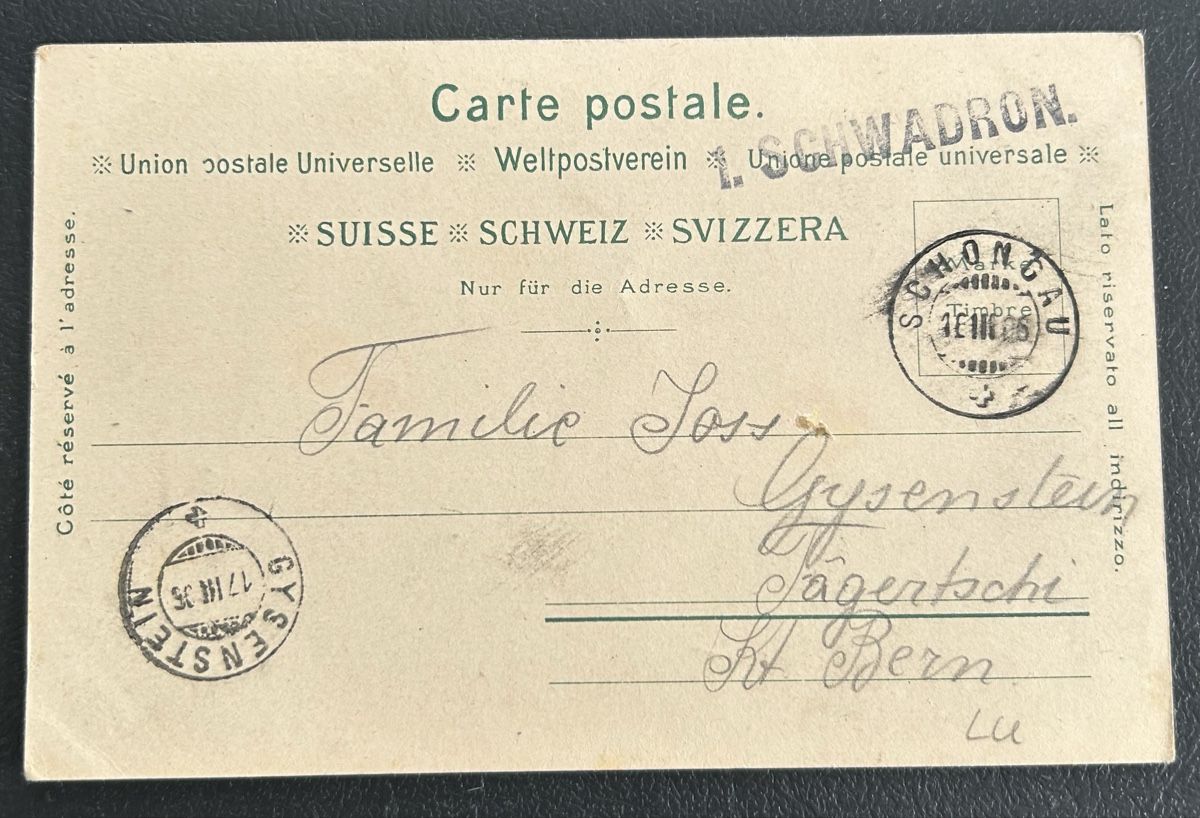 Carte postale.
1. SCHWADRON.
※ Union postale Universelle ※ Weltpostverein ※ Unione postale universale ※
※ SUISSE ※ SCHWEIZ ※ SVIZZERA
Nur für die Adresse.
Marke
Timbre
SCHONGAU
Côté réservé à l'adresse.
Lato riservato all indirizzo.
Familie Joss
Gysenstein
Tägertschi
Kt Bern
LU
GYSENSTEIN
17 III 06